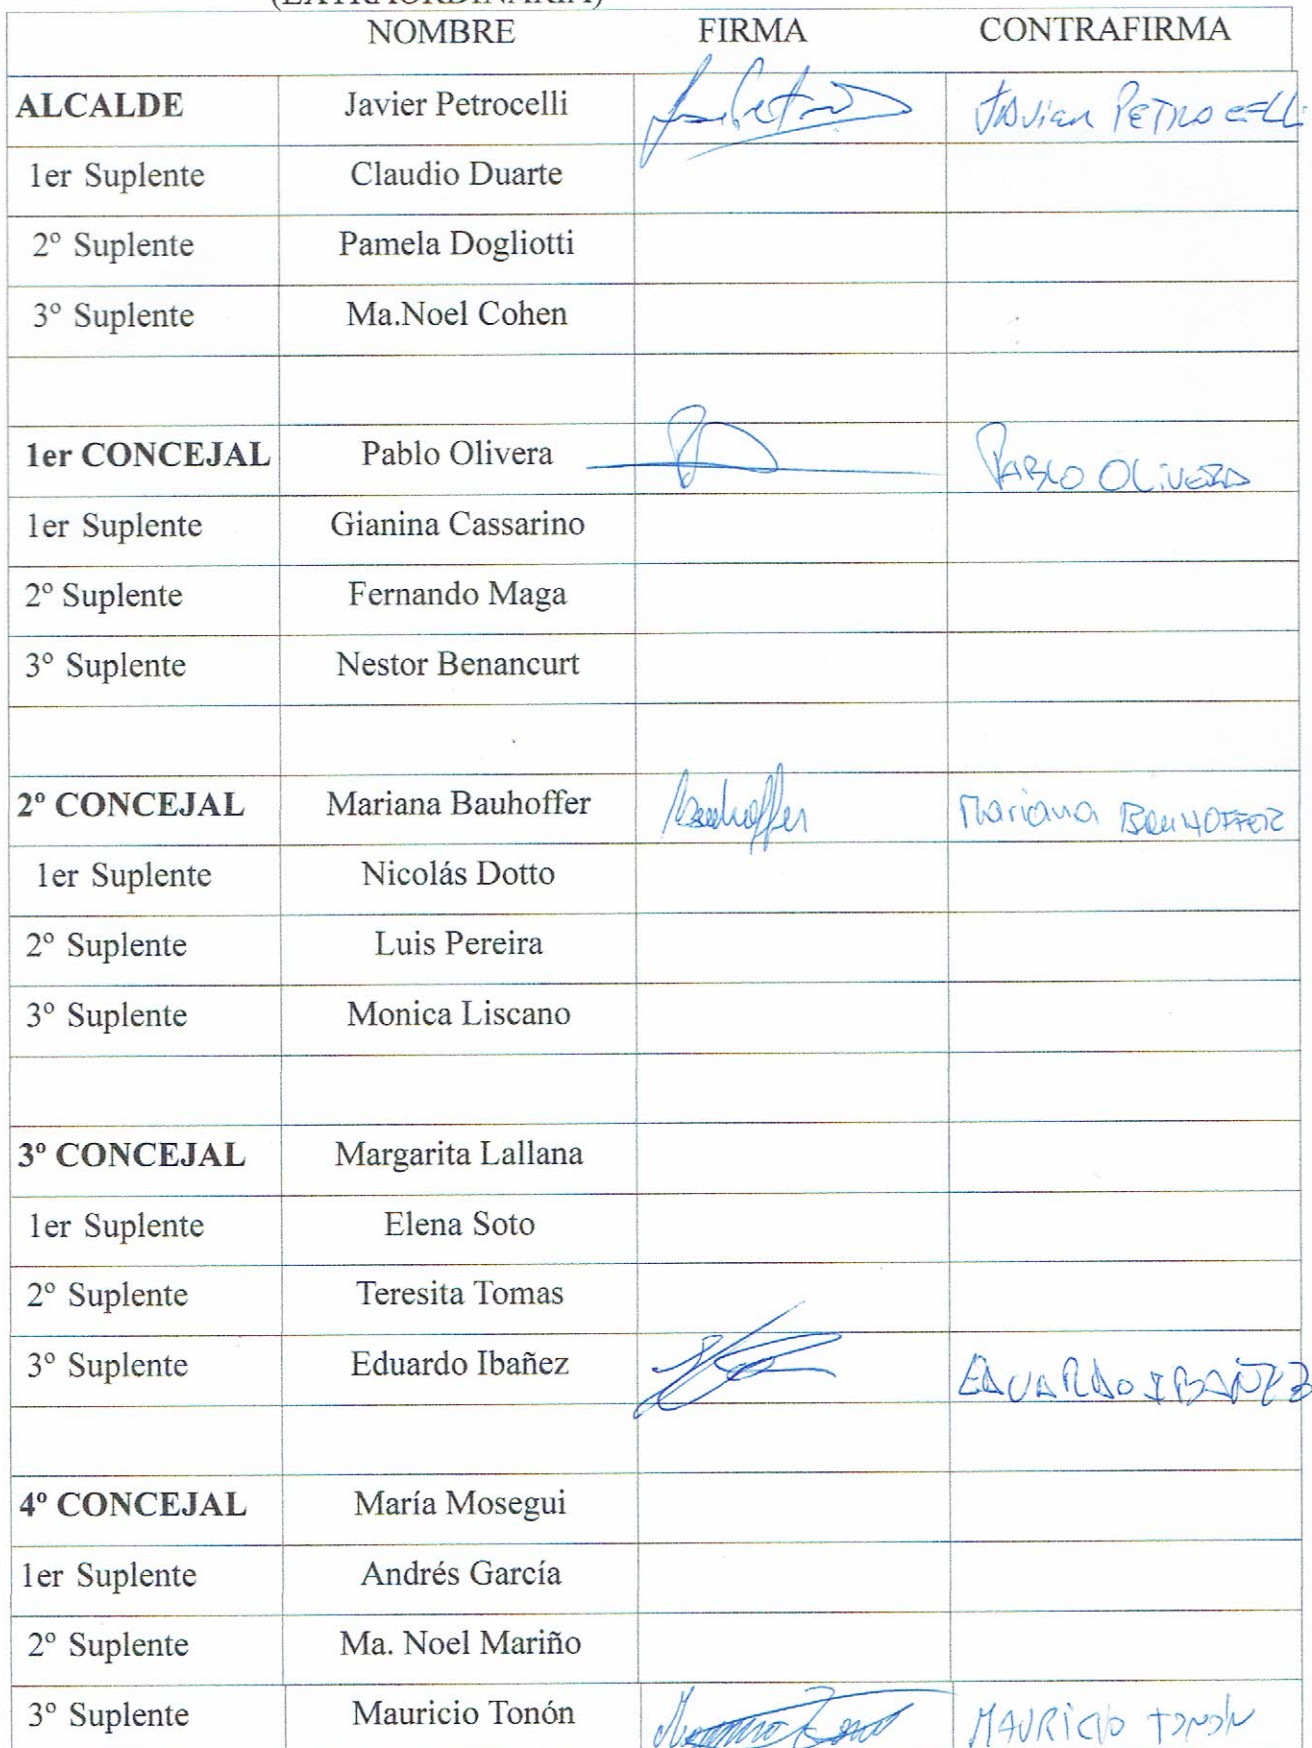 (EXTRAORDINARIA)
NOMBRE FIRMA CONTRAFIRMA
ALCALDE Javier Petrocelli Javier PETROCELLI
1er Suplente Claudio Duarte
2º Suplente Pamela Dogliotti
3º Suplente Ma.Noel Cohen
1er CONCEJAL Pablo Olivera PABLO OLIVERA
1er Suplente Gianina Cassarino
2º Suplente Fernando Maga
3º Suplente Nestor Benancurt
2º CONCEJAL Mariana Bauhoffer Bauhoffer Mariana BAUHOFFER
1er Suplente Nicolás Dotto
2º Suplente Luis Pereira
3º Suplente Monica Liscano
3º CONCEJAL Margarita Lallana
1er Suplente Elena Soto
2º Suplente Teresita Tomas
3º Suplente Eduardo Ibañez EDUARDO IBAÑEZ
4º CONCEJAL María Mosegui
1er Suplente Andrés García
2º Suplente Ma. Noel Mariño
3º Suplente Mauricio Tonón MAURICIO TONON